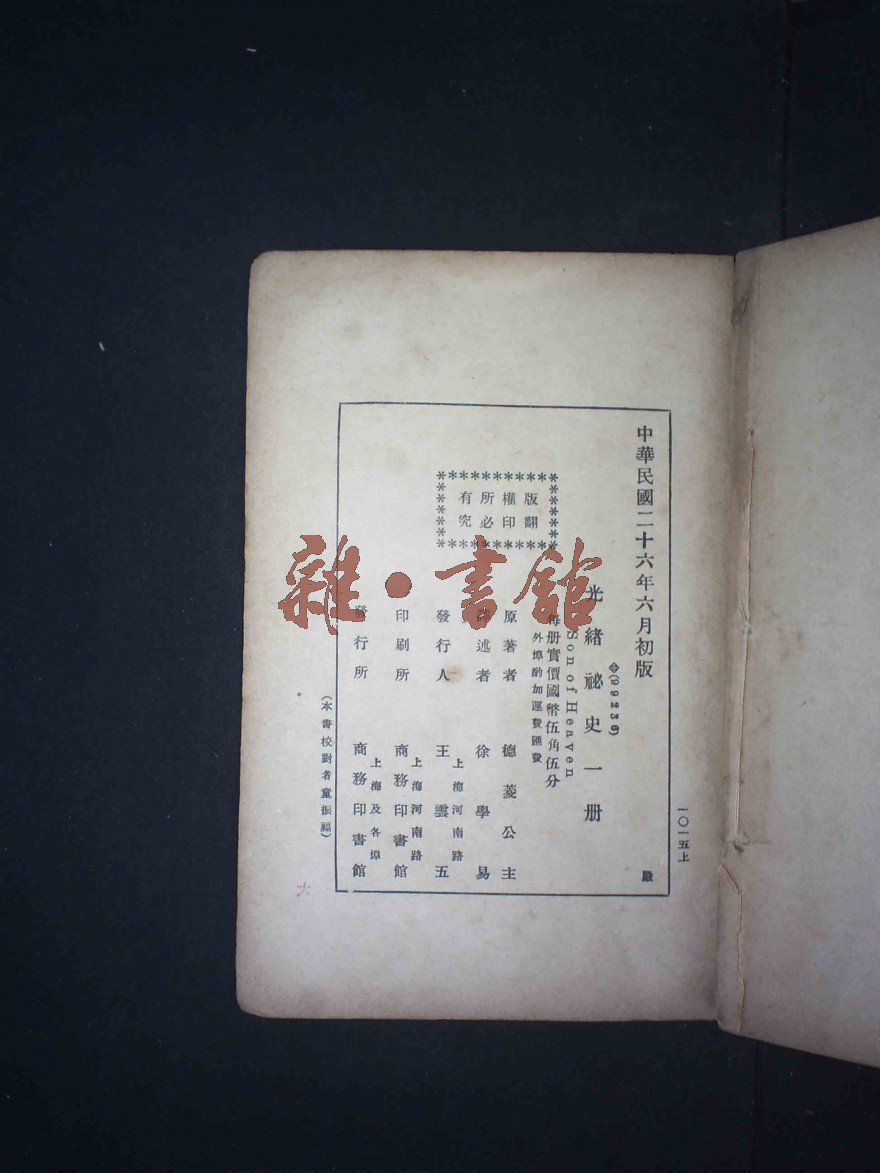 中華民國二十六年六月初版
嚴
一〇一五上
光緒祕史一册
(99236)
Son of Heaven
每册實價國幣伍角伍分
外埠酌加運費匯費
版權所有
翻印必究
原著者 德菱公主
述者 徐學易
發行人 王雲五
上海河南路
印刷所 商務印書館
上海河南路
發行所 商務印書館
上海及各埠
(本書校對者童振福)
雜·書館